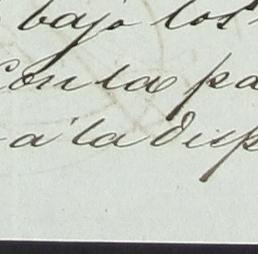 bajo los
con la pa
a la disp